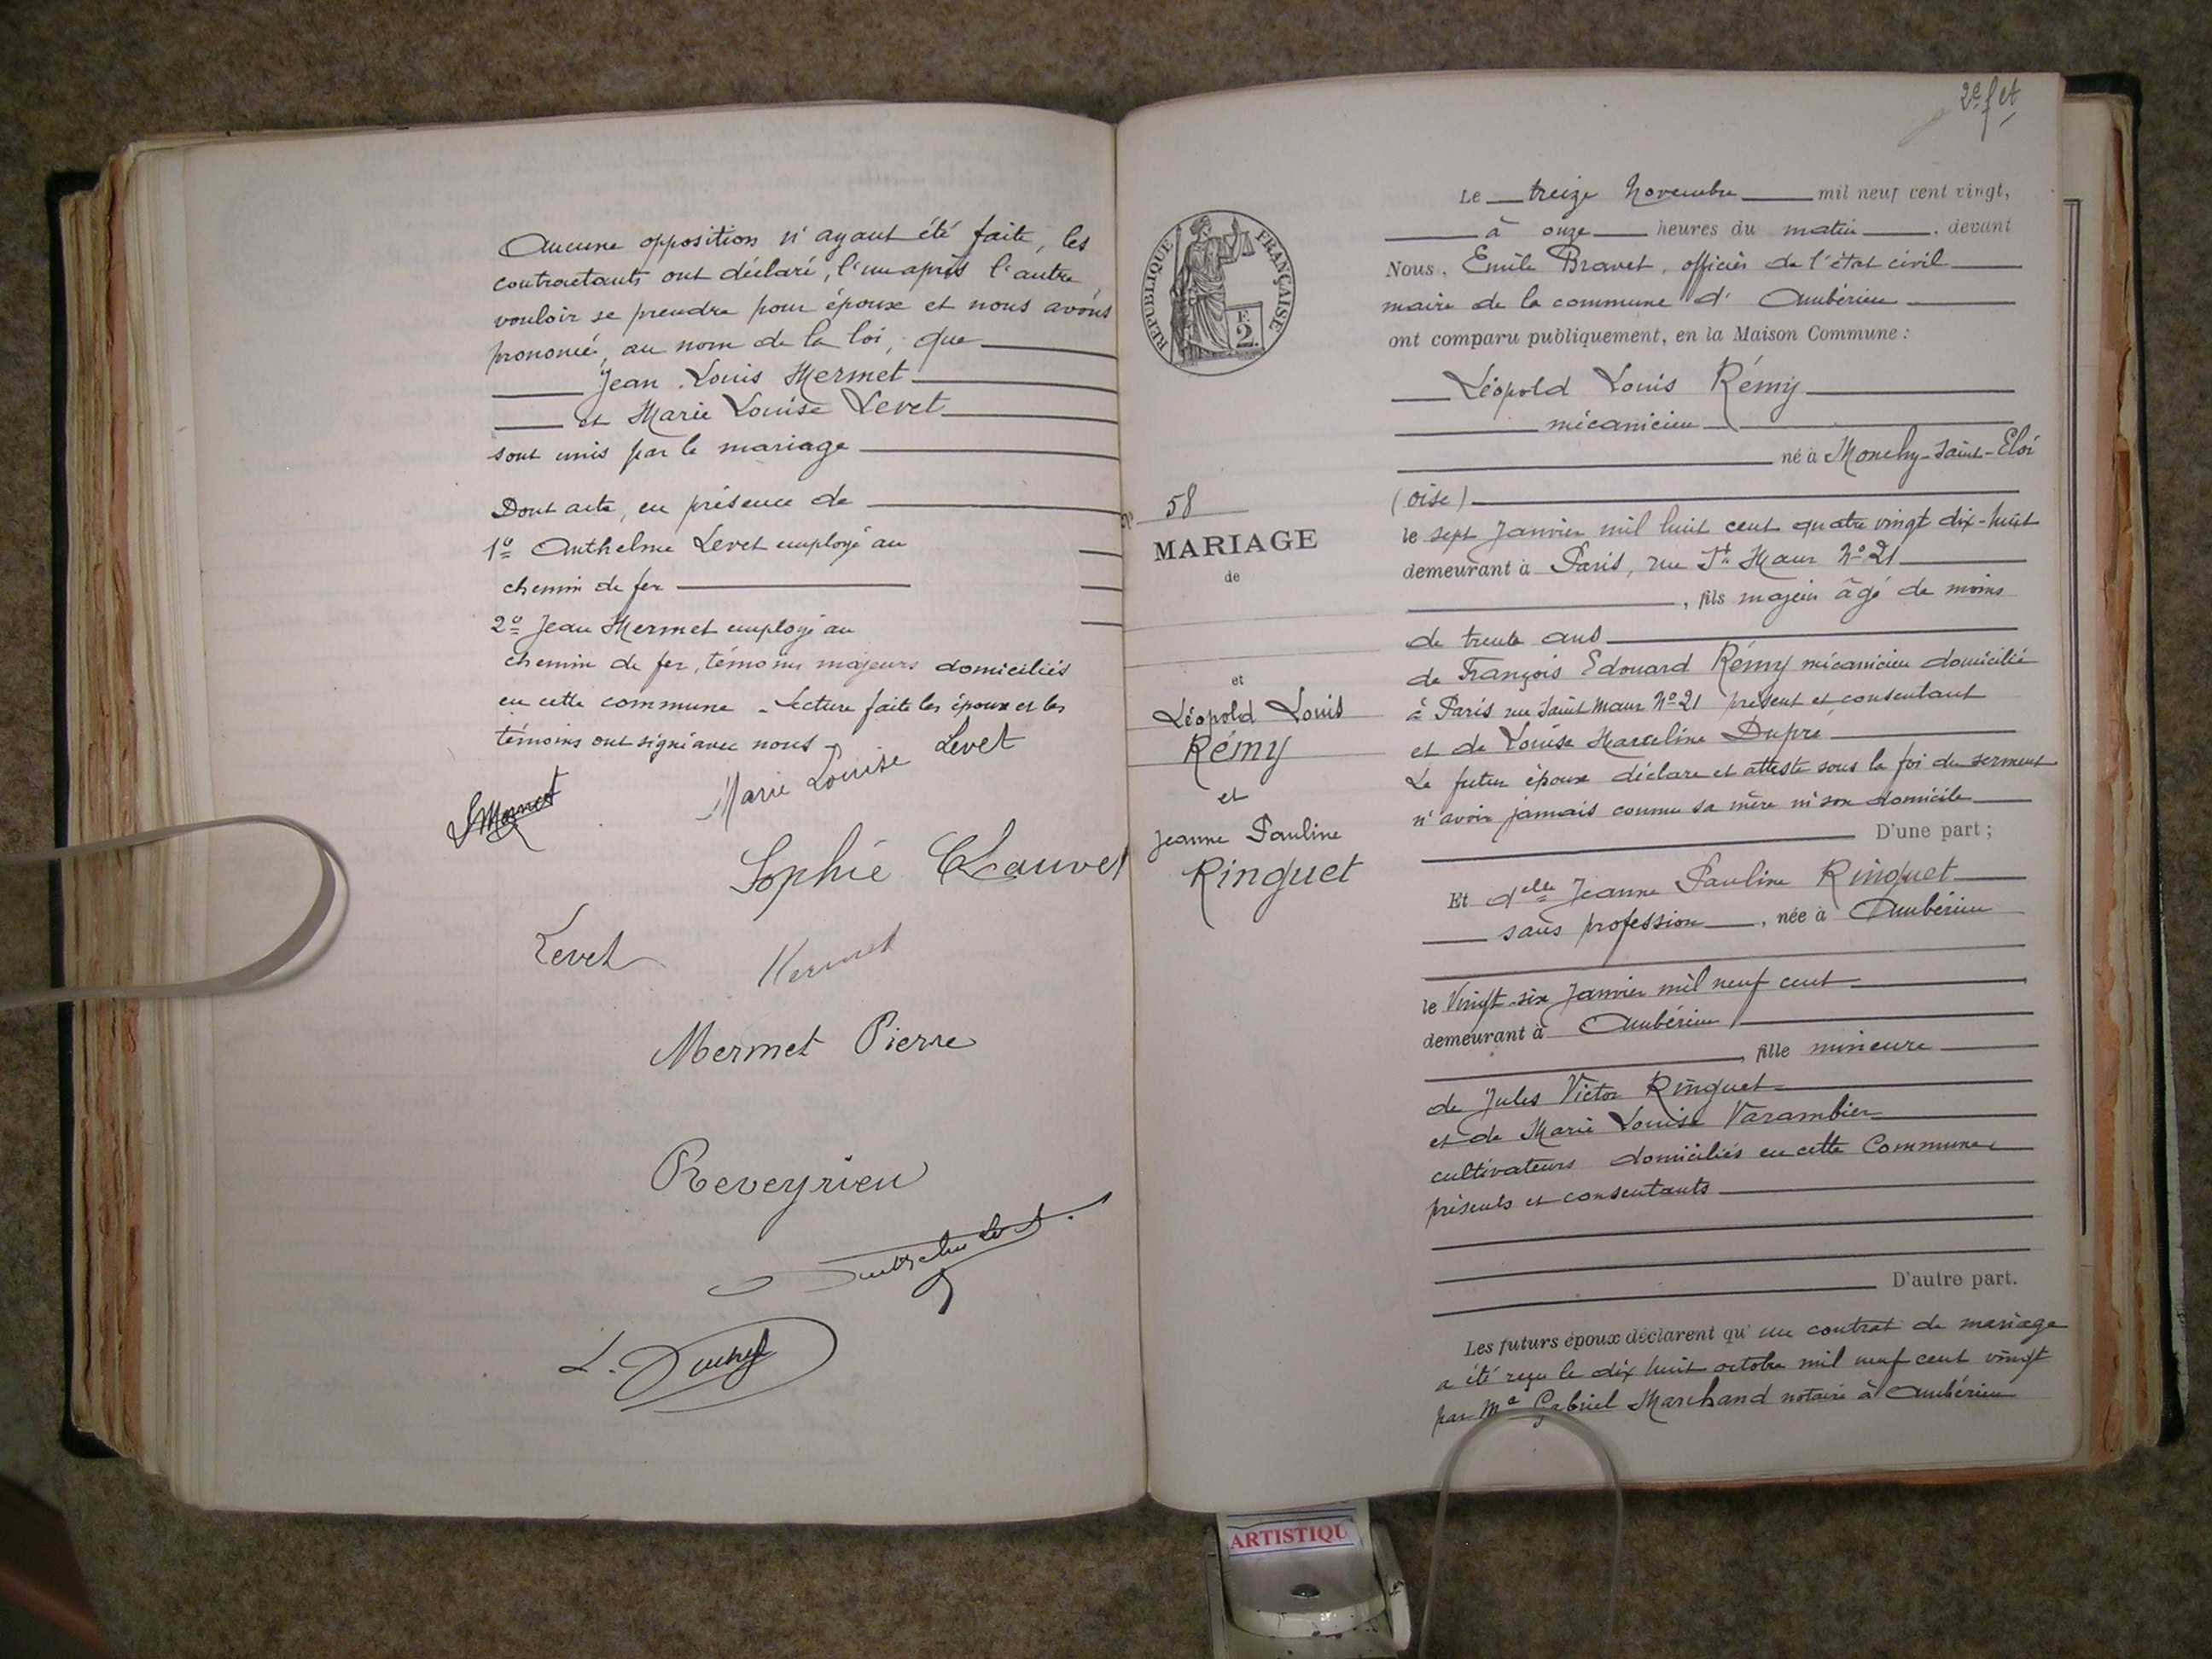 Aucune opposition n'ayant été faite, les
contractants ont déclaré, l'un après l'autre
vouloir se prendre pour époux et nous avons
prononcé, au nom de la loi, que
Jean Louis Mermet
et Marie Louise Levet
sont unis par le mariage
Dont acte, en présence de
1º Anthelme Levet employé au
chemin de fer
2º Jean Mermet employé au
chemin de fer, témoins majeurs domiciliés
en cette commune - Lecture faite les époux et les
témoins ont signé avec nous -
Marie Louise Levet
Sophie Chauvet
Levet
Mermet
Mermet Pierre
Reveyrieu
2e f et
Le treize Novembre mil neuf cent vingt,
à onze heures du matin, devant
Nous, Emile Bravet, officier de l'état civil
maire de la commune d'Ambérieu
ont comparu publiquement, en la Maison Commune :
Léopold Louis Rémy
mécanicien
né à Monchy-Saint-Eloi
(oise)
le sept Janvier mil huit cent quatre vingt dix-huit
demeurant à Paris, rue St Maur Nº 21
, fils majeur âgé de moins
de trente ans
de François Edouard Rémy mécanicien domicilié
à Paris rue Saint Maur Nº 21 présent et consentant
et de Louise Marceline Dupré
Le futur époux déclare et atteste sous la foi du serment
n'avoir jamais connu sa mère ni son domicile
D'une part ;
Et delle Jeanne Pauline Ringuet
sans profession, née à Ambérieu
le Vingt-six Janvier mil neuf cent
demeurant à Ambérieu
, fille mineure
de Jules Victor Ringuet
et de Marie Louise Varambier
cultivateurs domiciliés en cette Commune
présents et consentants
D'autre part.
Les futurs époux déclarent qu'un contrat de mariage
a été reçu le dix huit octobre mil neuf cent vingt
par Me Gabriel Marchand notaire à Ambérieu
RÉPUBLIQUE FRANÇAISE
F.
2.
Nº 58
MARIAGE
de
et
Léopold Louis
Rémy
et
Jeanne Pauline
Ringuet
ARTISTIQU